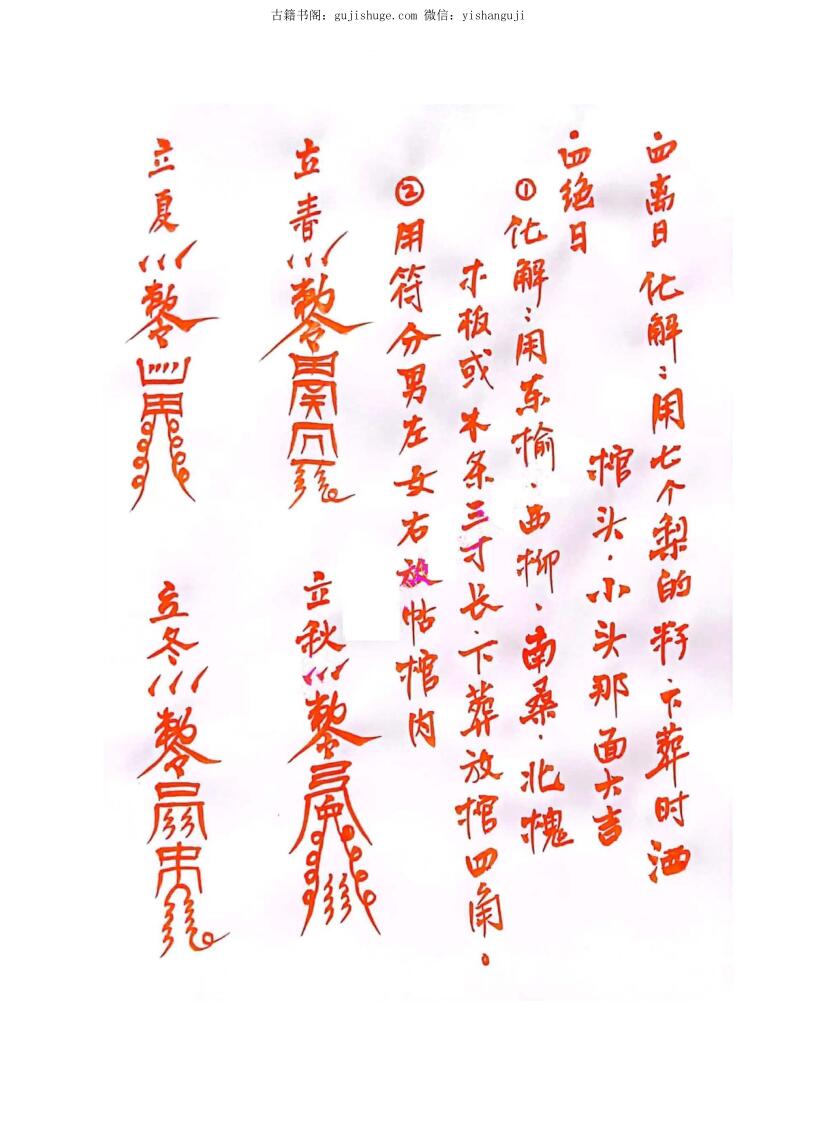 古籍书阁：gujishuge.com 微信：yishanguji
四离日 化解：用七个梨的籽、下葬时洒
棺头．小头那面大吉
四绝日
① 化解：用东榆、西柳、南桑、北槐
木板或木条三寸长、下葬放棺四角。
② 用符分男左女右放帖棺内
立春
立夏
立秋
立冬